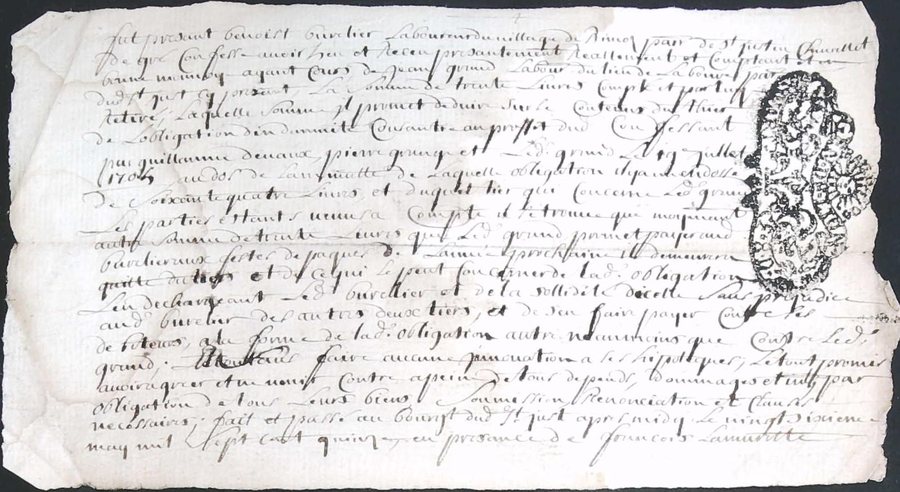 fut present benoist burelier Laboureur du village de parr de st justin Chevallet
de gré Confesse avoir heu et Receu presantement Reallement et Comptant en
bonne monnoy ayant Cours, de Jean grand Labour du lieu de
dud st just cy present, La Somme de trente Livres Compte et
Retiré, Laquelle Somme il promet deduire Sur le Contenu du thier
de Lobligation dindamnité Consantie au proffet dud Confessant
par guillaume devaux, pierre et Led grand Le 19e juillet
1705 au dos de La minutte de Laquelle obligation il y a
de Soixante quatre Livres, et duquel tier qui Concerne Led grand
Les parties estants venus a Compte il se trouve que moyenant
autre Somme de trente Livres que Led grand promet payer aud
burelier aux festes de paques de Lannée prochaine il demeurera
quitte et de ce qui Le peut Concerner de lad obligation
Len dechargeant Led burellier et de la sollidité dicelle Sans prejudice
aud burelier des autres deux tiers, et de sen faire payer Contre Les
debiteurs, a la forme de lad obligation autre neanmoins que Contre Led
grand, faire aucune innovation a ses hipoteques, Le tout promis
avoir agreer et ne venir Contre a peine de tous depends, dommages et par
obligation de tous Leurs biens Soumission Renonciation et Clauses
necessaires, fait et passé au bourg dud St just apres midy Le vingt sixieme
may mil Sept Cent quinze, en presance de françois